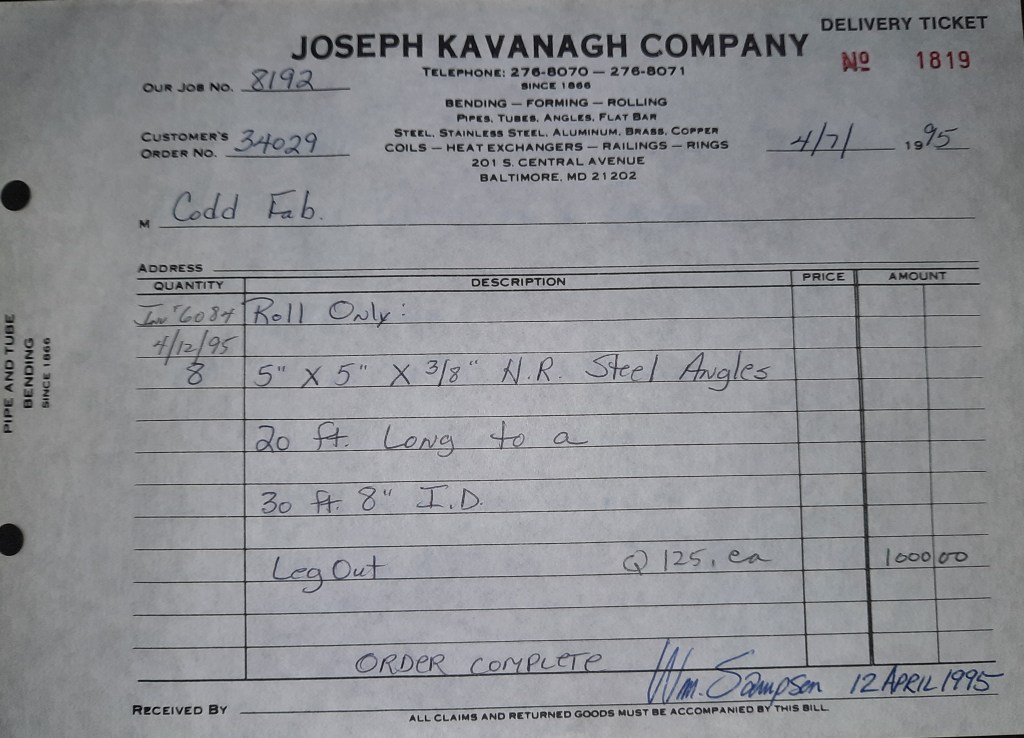 DELIVERY TICKET
JOSEPH KAVANAGH COMPANY
Nº 1819
TELEPHONE: 276-8070 — 276-8071
SINCE 1866
OUR JOB NO. 8192
BENDING — FORMING — ROLLING
PIPES, TUBES, ANGLES, FLAT BAR
STEEL, STAINLESS STEEL, ALUMINUM, BRASS, COPPER
COILS — HEAT EXCHANGERS — RAILINGS — RINGS
201 S. CENTRAL AVENUE
BALTIMORE, MD 21202
CUSTOMER'S
ORDER NO. 34029
4/7/ 1995
M Codd Fab.
ADDRESS
QUANTITY DESCRIPTION PRICE AMOUNT
Inv # 6084 Roll Only:
4/12/95
8 5" X 5" X 3/8" H.R. Steel Angles
20 ft. Long to a
30 ft. 8" I.D.
Leg Out @ 125. ea 1000 00
ORDER COMPLETE
Wm. Sampson 12 APRIL 1995
RECEIVED BY
ALL CLAIMS AND RETURNED GOODS MUST BE ACCOMPANIED BY THIS BILL
PIPE AND TUBE
BENDING
SINCE 1866